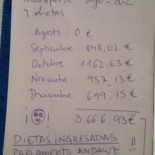 Transporte
y dietas
Agosto: 0 €
Septiembre 848,02 €
Octubre 1162,63 €
Noviembre 957,13 €
Diciembre 699,15 €
3.666,93 €
DIETAS INGRESADAS
PARLAMENTO ANDALUZ